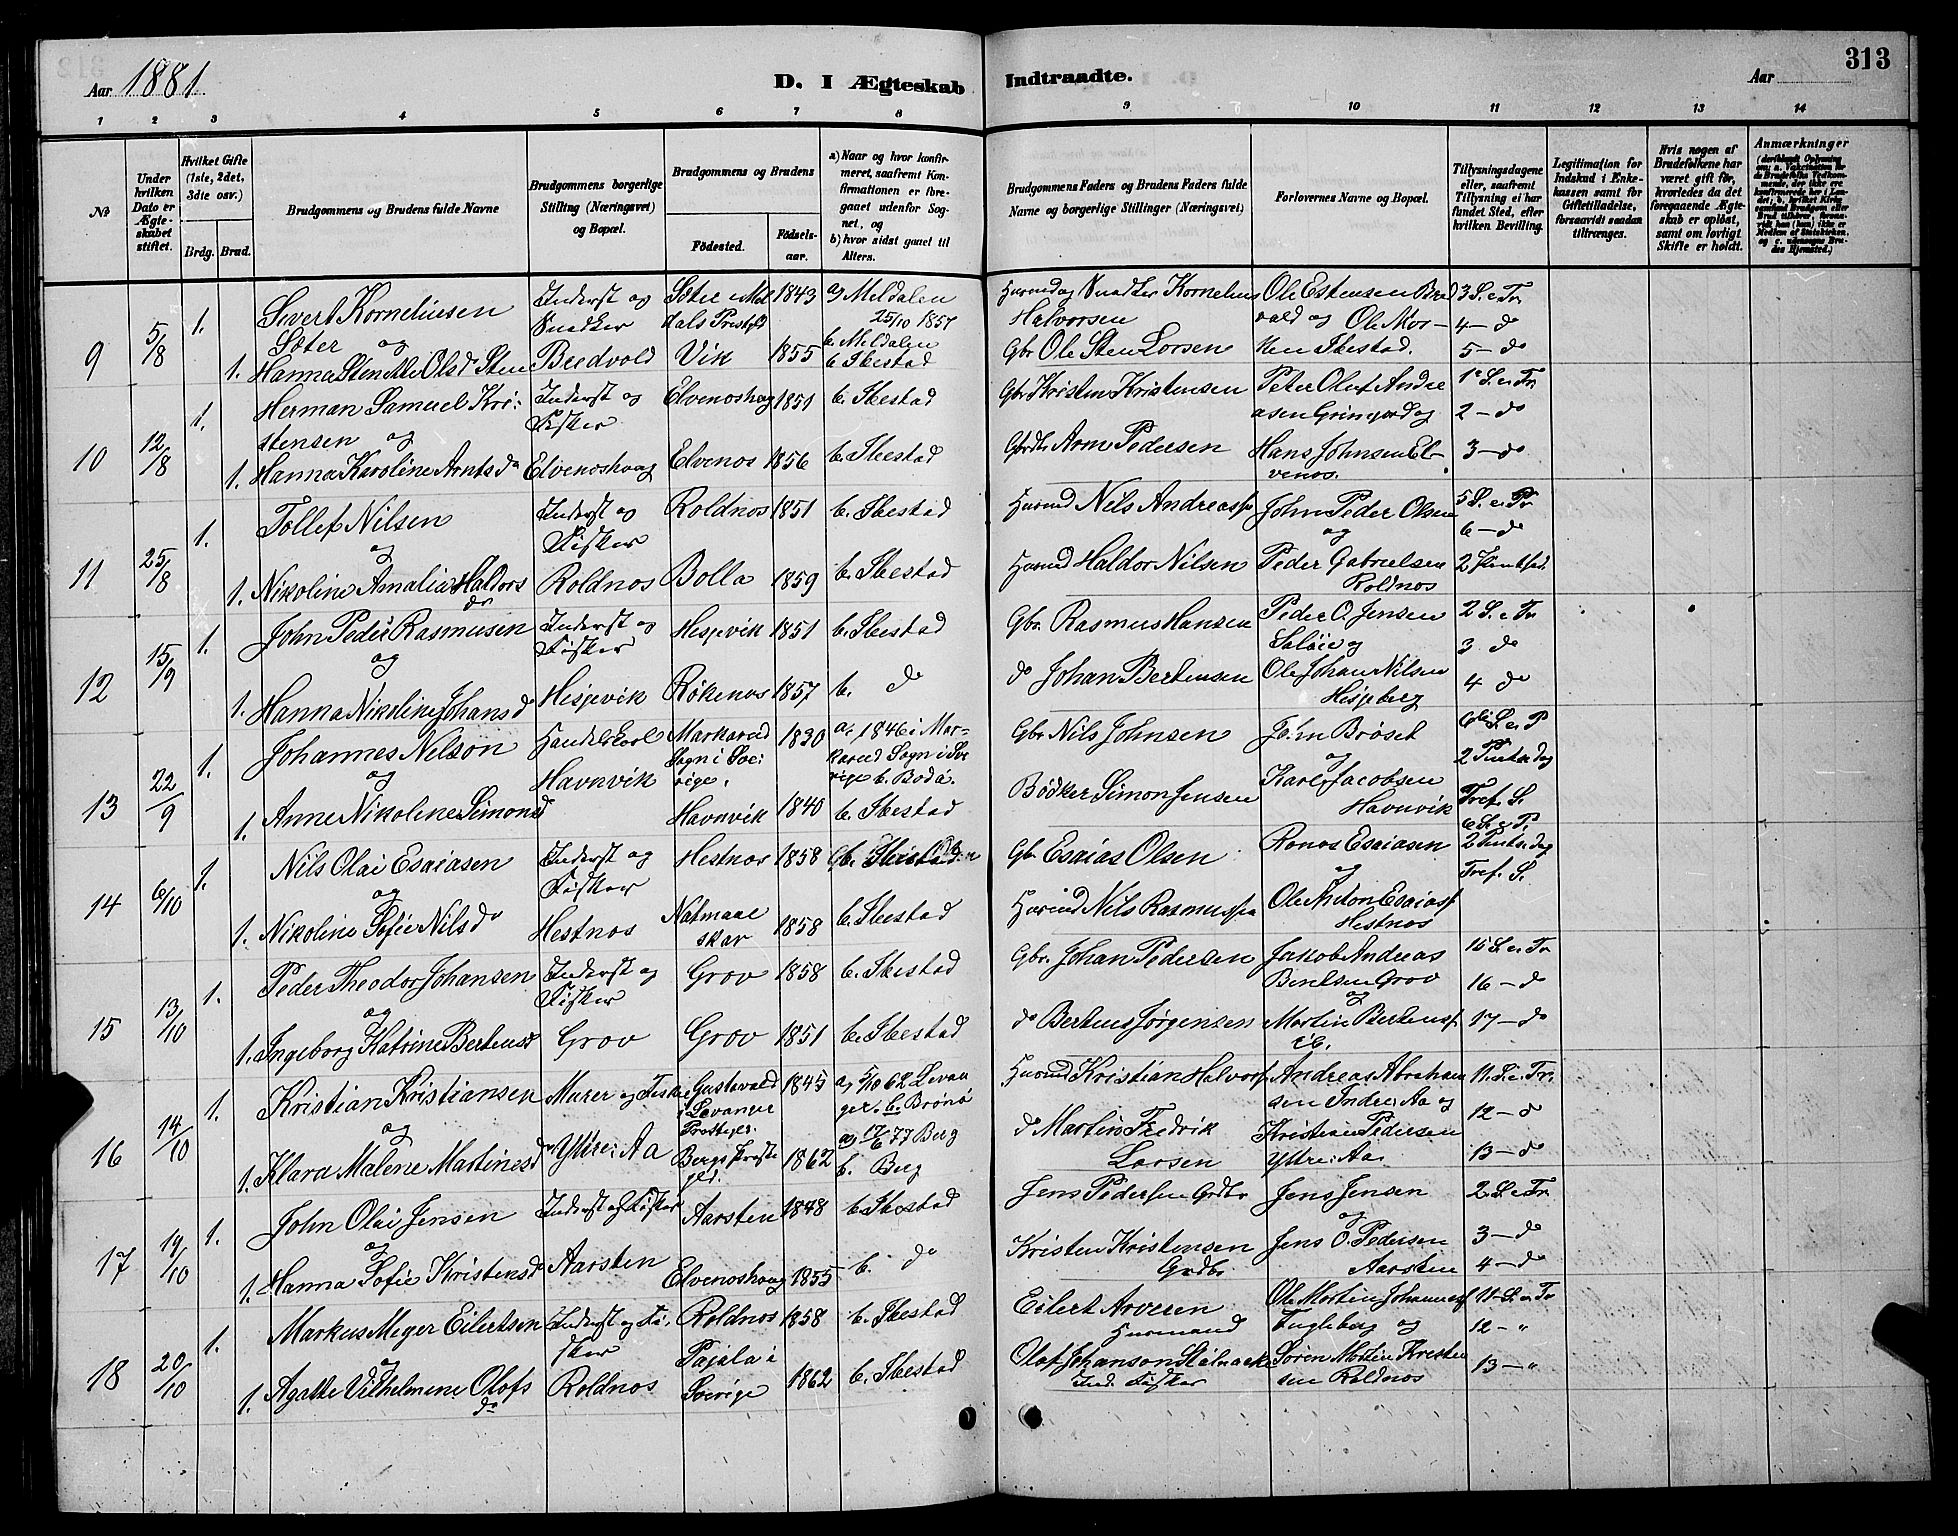 Aar 1881.
D. I Ægteskab Indtraadte.
Aar
313
1 2 3 4 5 6 7 8 9 10 11 12 13 14
No
Under hvilken Dato er Ægteskabet stiftet.
Hvilket Gifte (1ste, 2det, 3die osv.)
Brdg. Brud.
Brudgommens og Brudens fulde Navne
Brudgommens borgerlige Stilling (Næringsvei) og Bopæl.
Brudgommens og Brudens
Födested. Födselsaar.
a) Naar og hvor konfirmeret, saafremt Konfirmationen er foregaaet udenfor Sognet, og
b) hvor sidst gaaet til Alters.
Brudgommens Faders og Brudens Faders fulde Navne og borgerlige Stillinger (Næringsvei)
Forlovernes Navne og Bopæl.
Tillysningsdagene eller, saafremt Tillysning ei har fundet Sted, efter hvilken Bevilling.
Legitimation for Indskud i Enkekassen samt for Giftetilladelse, forsaavidt saadan tiltrænges.
Hvis nogen af Brudefolkene har været gift för, hvorledes da det foregaaende Ægteskab er oplöst, samt om lovligt Skifte er holdt.
Anmærkninger
9 5/8 1. Sivert Korneliusen Söter og
Inderst og Snedker
Söter i Meldals Prestgjld 1843
a) Meldalen 25/10 1857 b. Meldalen
Husmd og Snedker Kornelius Halvorsen
Ole Estensen Bredvold og Ole Morken Ibestad.
3 S. e. Tr. 4 – do 5 – do
1. Hanna Sten Olsd Sten Bredvold Vik 1855 b. Ibestad
Gbr Ole Sten Larsen
10 12/8 1. Herman Samuel Kristensen og
Inderst og Fisker
Elvenoshaug 1851 b. Ibestad
Gbr Kristen Kristensen
Peter Oluf Andreasen Gringord og Hans Johnsen Elvenos.
1 S. e. Tr. 2 – do 3 – do
1. Hanna Karoline Arntsdr Elvenoshaug Elvenos 1856 b. Ibestad
Gbr Arn Pedersen
11 25/8 1. Tollef Nilsen og
Inderst og Fisker
Roldnos 1851 b. Ibestad
Husmd Nils Andreass
John Peder Olsen og Peder Gabrielsen Roldnos
5 S. e. Tr 6 – do
1. Nikoline Amalia Haldorsdr Roldnos Bolla 1859 b. Ibestad
Husmd Haldor Nilsen
12 15/9 1. John Peder Rasmusen og
Inderst og Fisker
Hesjevik 1851 b. Ibestad
Gbr. Rasmus Hansen
Peder O. Jensen Salöie og Ole Johan Nilsen Hesjeberg
2 S. e. Tr 3 do 4 do
1. Hanna Nikoline Johansd Hesjevik Rökenes 1857 b. do
do Johan Bertensen
13 22/9 1. Johannes Nelson og
Handelskarl Havnvik
Markared Sogn i Sverige. 1830
a, 1846 i Markared Sogn i Sverige b. Bodö.
Gbr Nils Johnsen
John Bröset og Karl Jacobsen Havnvik
2 Pintsedag Tref. S.
1. Anne Nikoline Simonsd Havnvik 1840 b. Ibestad
Bödker Simon Jensen
14 6/10 1. Nils Olai Esaiasen og
Inderst og Fisker
Hestnos 1858
Gbr Esaias Olsen
Ronos Esaiasen og Ole Anton Esaiass Hestnos
6 S. e. P. 2 Pintsedag Tref. S.
1. Nikoline Sofie Nilsdr Hestnos Natmaalskar 1858 b. Ibestad
Husmd Nils Rasmussen
15 13/10 1. Peder Theodor Johansen og
Inderst og Fisker
Grov 1858 b. Ibestad
Gbr. Johan Pedersen
Jakob Andreas Bentsen Grov og Martin Bertens ib.
15 S. e. Tr. 16 – do 17 – do
1. Ingeborg Katrine Bertensd Grov Grov 1851 b. Ibestad
do Bertens Jörgensen
16 14/10 1. Kristian Kristiansen og
Murer og Fisker Yttre: Aa
Gustavald i Levanger Prestgjl. 1845
a, 5/10 62 Levanger. b. Brönö
Husmd Kristian Halvors
Andreas Abrahamsen Indre: Aa og Kristian Pedersen Yttre: Aa.
11. S. e. Tr. 12 – do 13 – do
1. Klara Malene Martinesdr Bergs Prestegld. 1862 a) 17/6 77 Berg b. Berg
do Martin Fredrik Larsen
17 19/10 1. John Olai Jensen og
Inderst og Fisker
Aarsten 1848 b. Ibestad
Jens Pedersen Grdbr
Jens Jensen og Jens O. Pedersen Aarsten
2. S. e. Tr. 3 – do 4 – do
1. Hanna Sofie Kristensd Aarsten Elvenoshaug 1855 b. do
Kristen Kristensen Grdbr
18 20/10 1. Markus Meyer Eilertsen og
Inderst og Fisker
Roldnos 1858 b. Ibestad
Eilert Arvesen Husmand
Ole Martin Johanness Fugleberg og Sören Martin Kristensen Roldnos
11 – S. e. Tr 12 – " 13 – "
1. Agathe Vilhelmine Olofsdr Roldnos Pajala i Sverige 1862 b. Ibestad
Olof Johanson Stålnacke Ind. Fisker